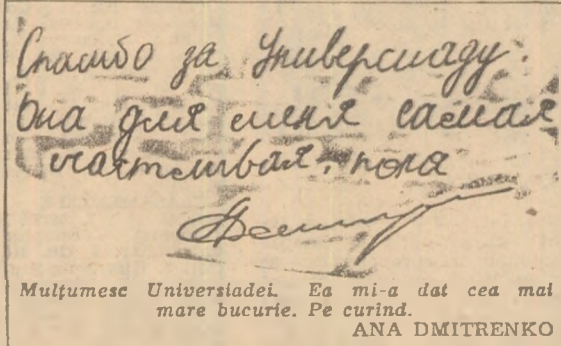 Спасибо за Универсиаду.
Она для меня самая
счастливая, пока
Mulţumesc Universiadei. Ea mi-a dat cea mai
mare bucurie. Pe curînd.
ANA DMITRENKO